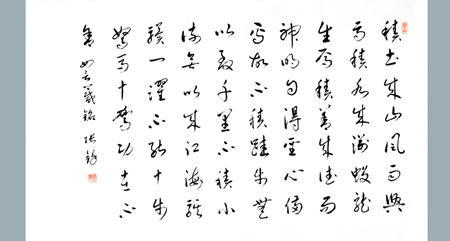 積土成山風雨興
焉積水成淵蛟龍
生焉積善成德而
神明自得聖心備
焉故不積跬步無
以致千里不積小
流無以成江海騏
驥一躍不能十步
駑馬十駕功在不
舍